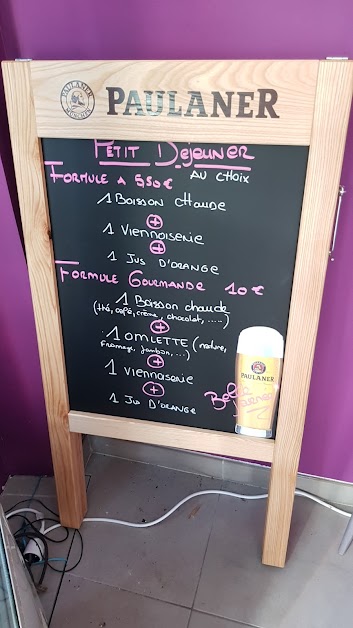 PAULANER
MÜNCHEN
PAULANER
PETIT DEJEUNER
FORMULE A 550€ AU CHOIX
1 BOISSON CHAUDE
+
1 VIENNOISERIE
+
1 JUS D'ORANGE
FORMULE GOURMANDE 10€
1 BOISSON chaude
(thé, café, crème, chocolat, .....)
+
1 OMLETTE (nature,
fromage, jambon, ...)
+
1 VIENNASERIE
+
1 JUS D'ORANGE
PAULANER